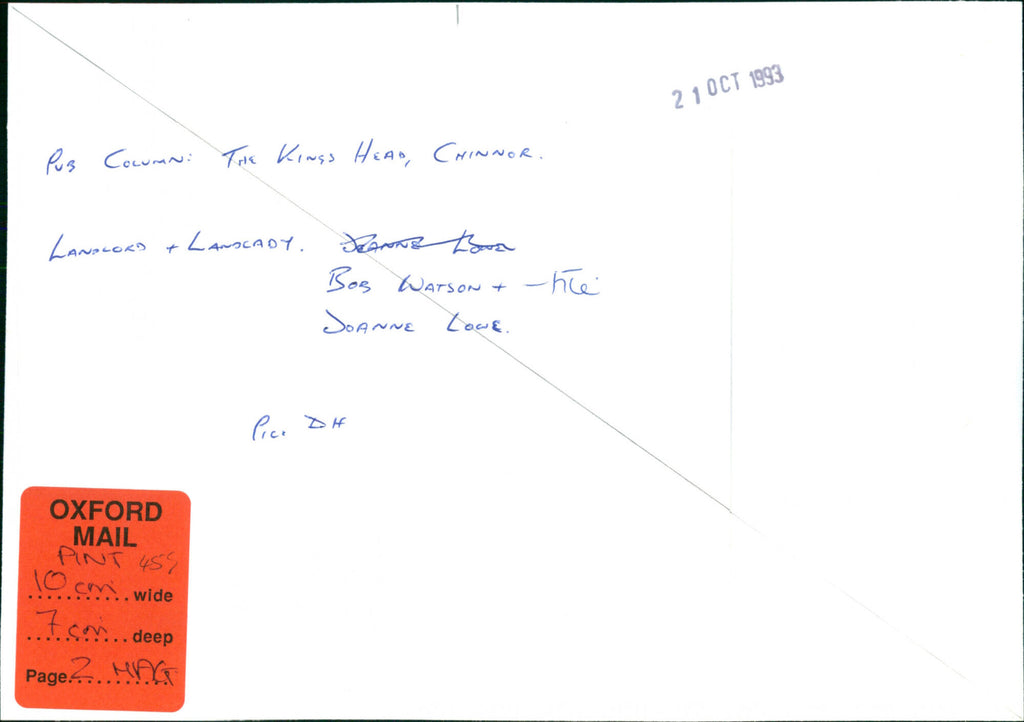 21 OCT 1993
PUB COLUMN: THE KINGS HEAD, CHINNOR.
LANDLORD + LANDLADY. JOANNE LOWE
BOB WATSON +
JOANNE LOWE.
PIC. DH
OXFORD
MAIL
PINT
10 cm wide
7 cm deep
Page 2 MAG